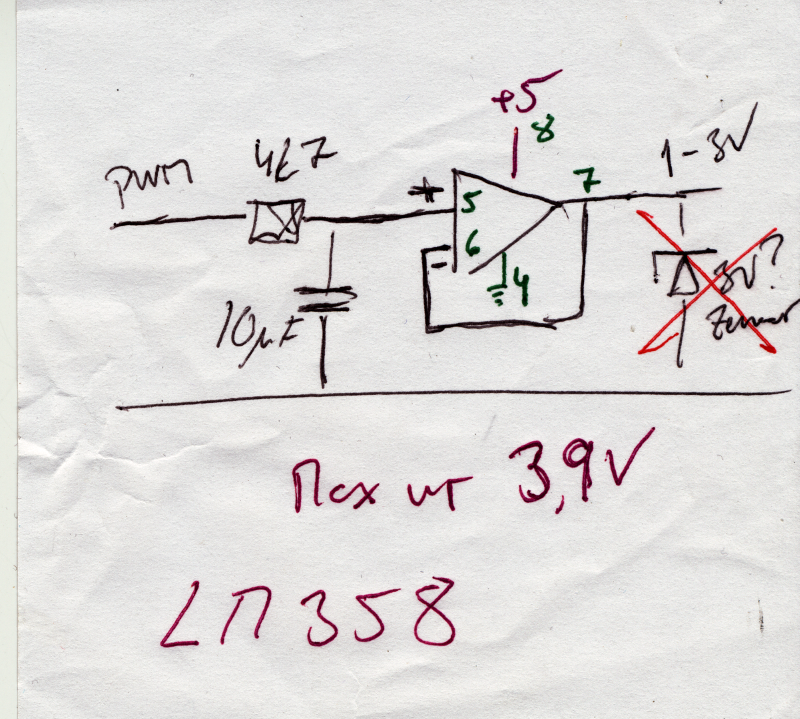 +5
8
PWM
4k7
1-3V
+
5
7
6
-
4
3V?
Zener
10µF
Max uit 3,9V
LM358